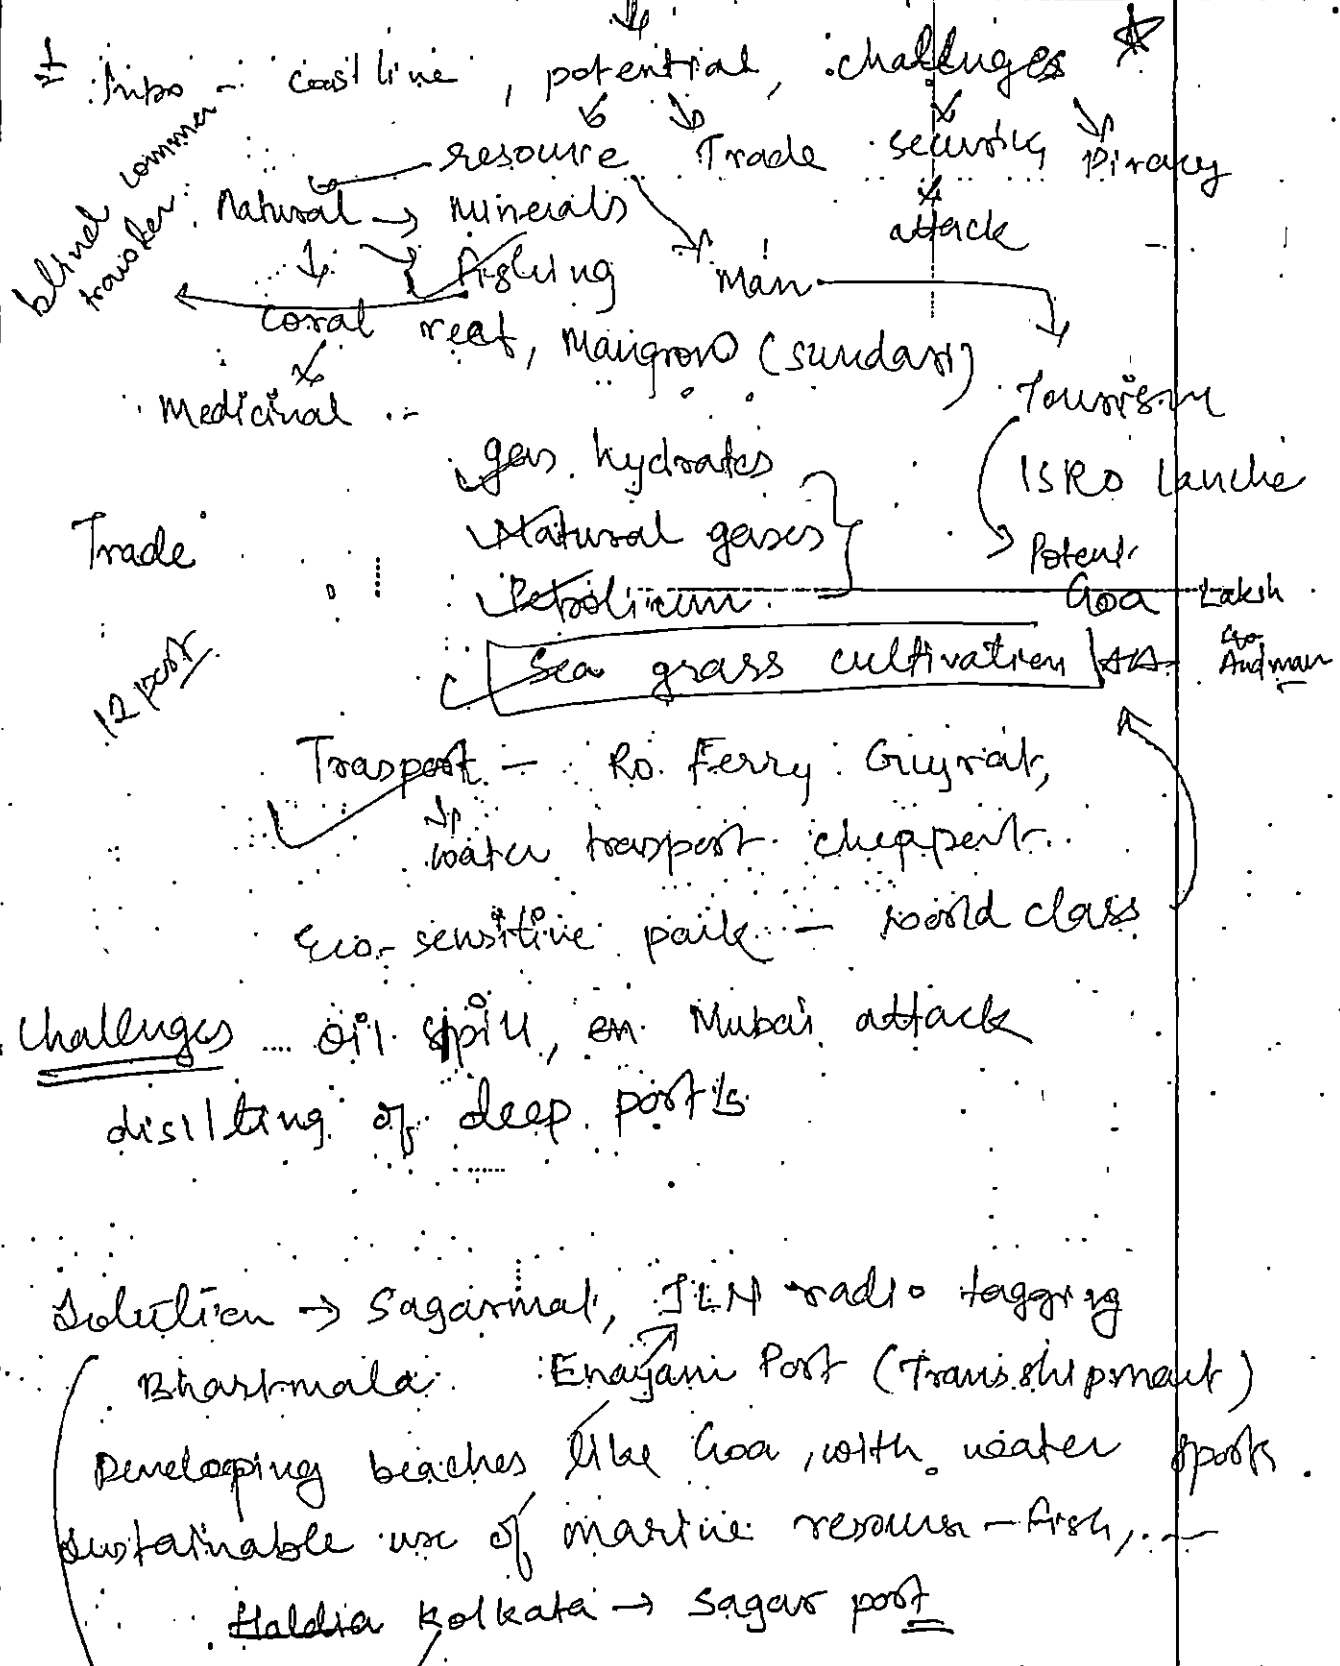 Intro - coastline, potential, challenges
resource Trade security Piracy
Natural → Minerals attack
fishing Man
coral reef, Mangrove (sundari)
Medicinal :- Tourism
gas hydrates ISRO
Trade Natural gases Potent.
Petrolieum. Goa Laksh
Sea grass cultivation Andman
12 port
Trasport - Ro. Ferry : Gujrat,
water trasport cheapent.
Eco-sensitive park - world class
Challenges oil spill, Mubai attack
disilting of deep ports
Solution → Sagarmal, JLN radio tagging
Bhartmala. Enayam Port (Transshipment)
Developing beaches like Goa, with water sports.
Sustainable use of marine resourse - fish,
Haldia Kolkata → Sagar port